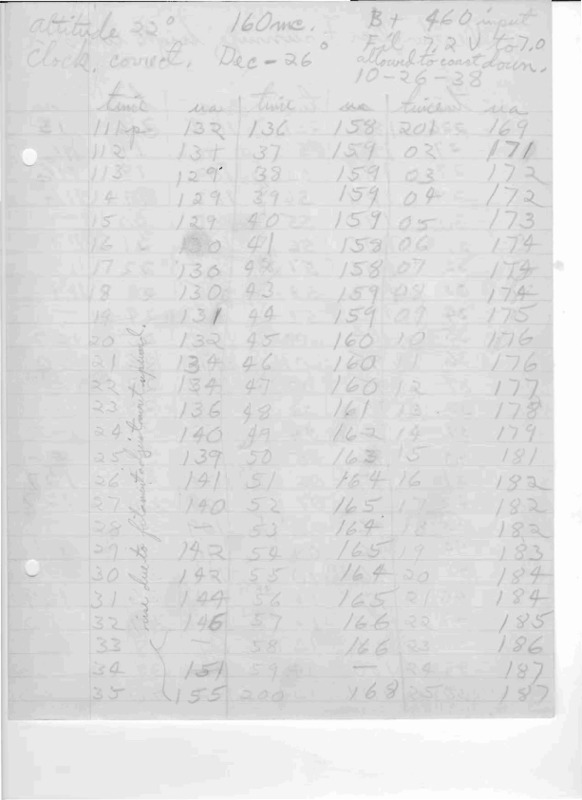 altitude 22° 160mc. B+ 460 input
Clock, correct. Dec -26° Fil 7.2V to 7.0
allowed to coast down.
10-26-38
time ua time ua time ua
111p 132 136 158 201 169
112 131 37 159 02 171
113 129 38 159 03 172
14 129 39 159 04 172
15 129 40 159 05 173
16 130 41 158 06 174
17 130 42 158 07 174
18 130 43 159 08 174
19 131 44 159 09 175
20 132 45 160 10 176
21 134 46 160 11 176
22 134 47 160 12 177
23 136 48 161 13 178
24 140 49 162 14 179
25 139 50 163 15 181
26 141 51 164 16 182
27 140 52 165 17 182
28 — 53 164 18 182
29 142 54 165 19 183
30 142 55 164 20 184
31 144 56 165 21 184
32 146 57 166 22 185
33 — 58 166 23 186
34 151 59 — 24 187
35 155 200 168 25 187
due to filament adjustment